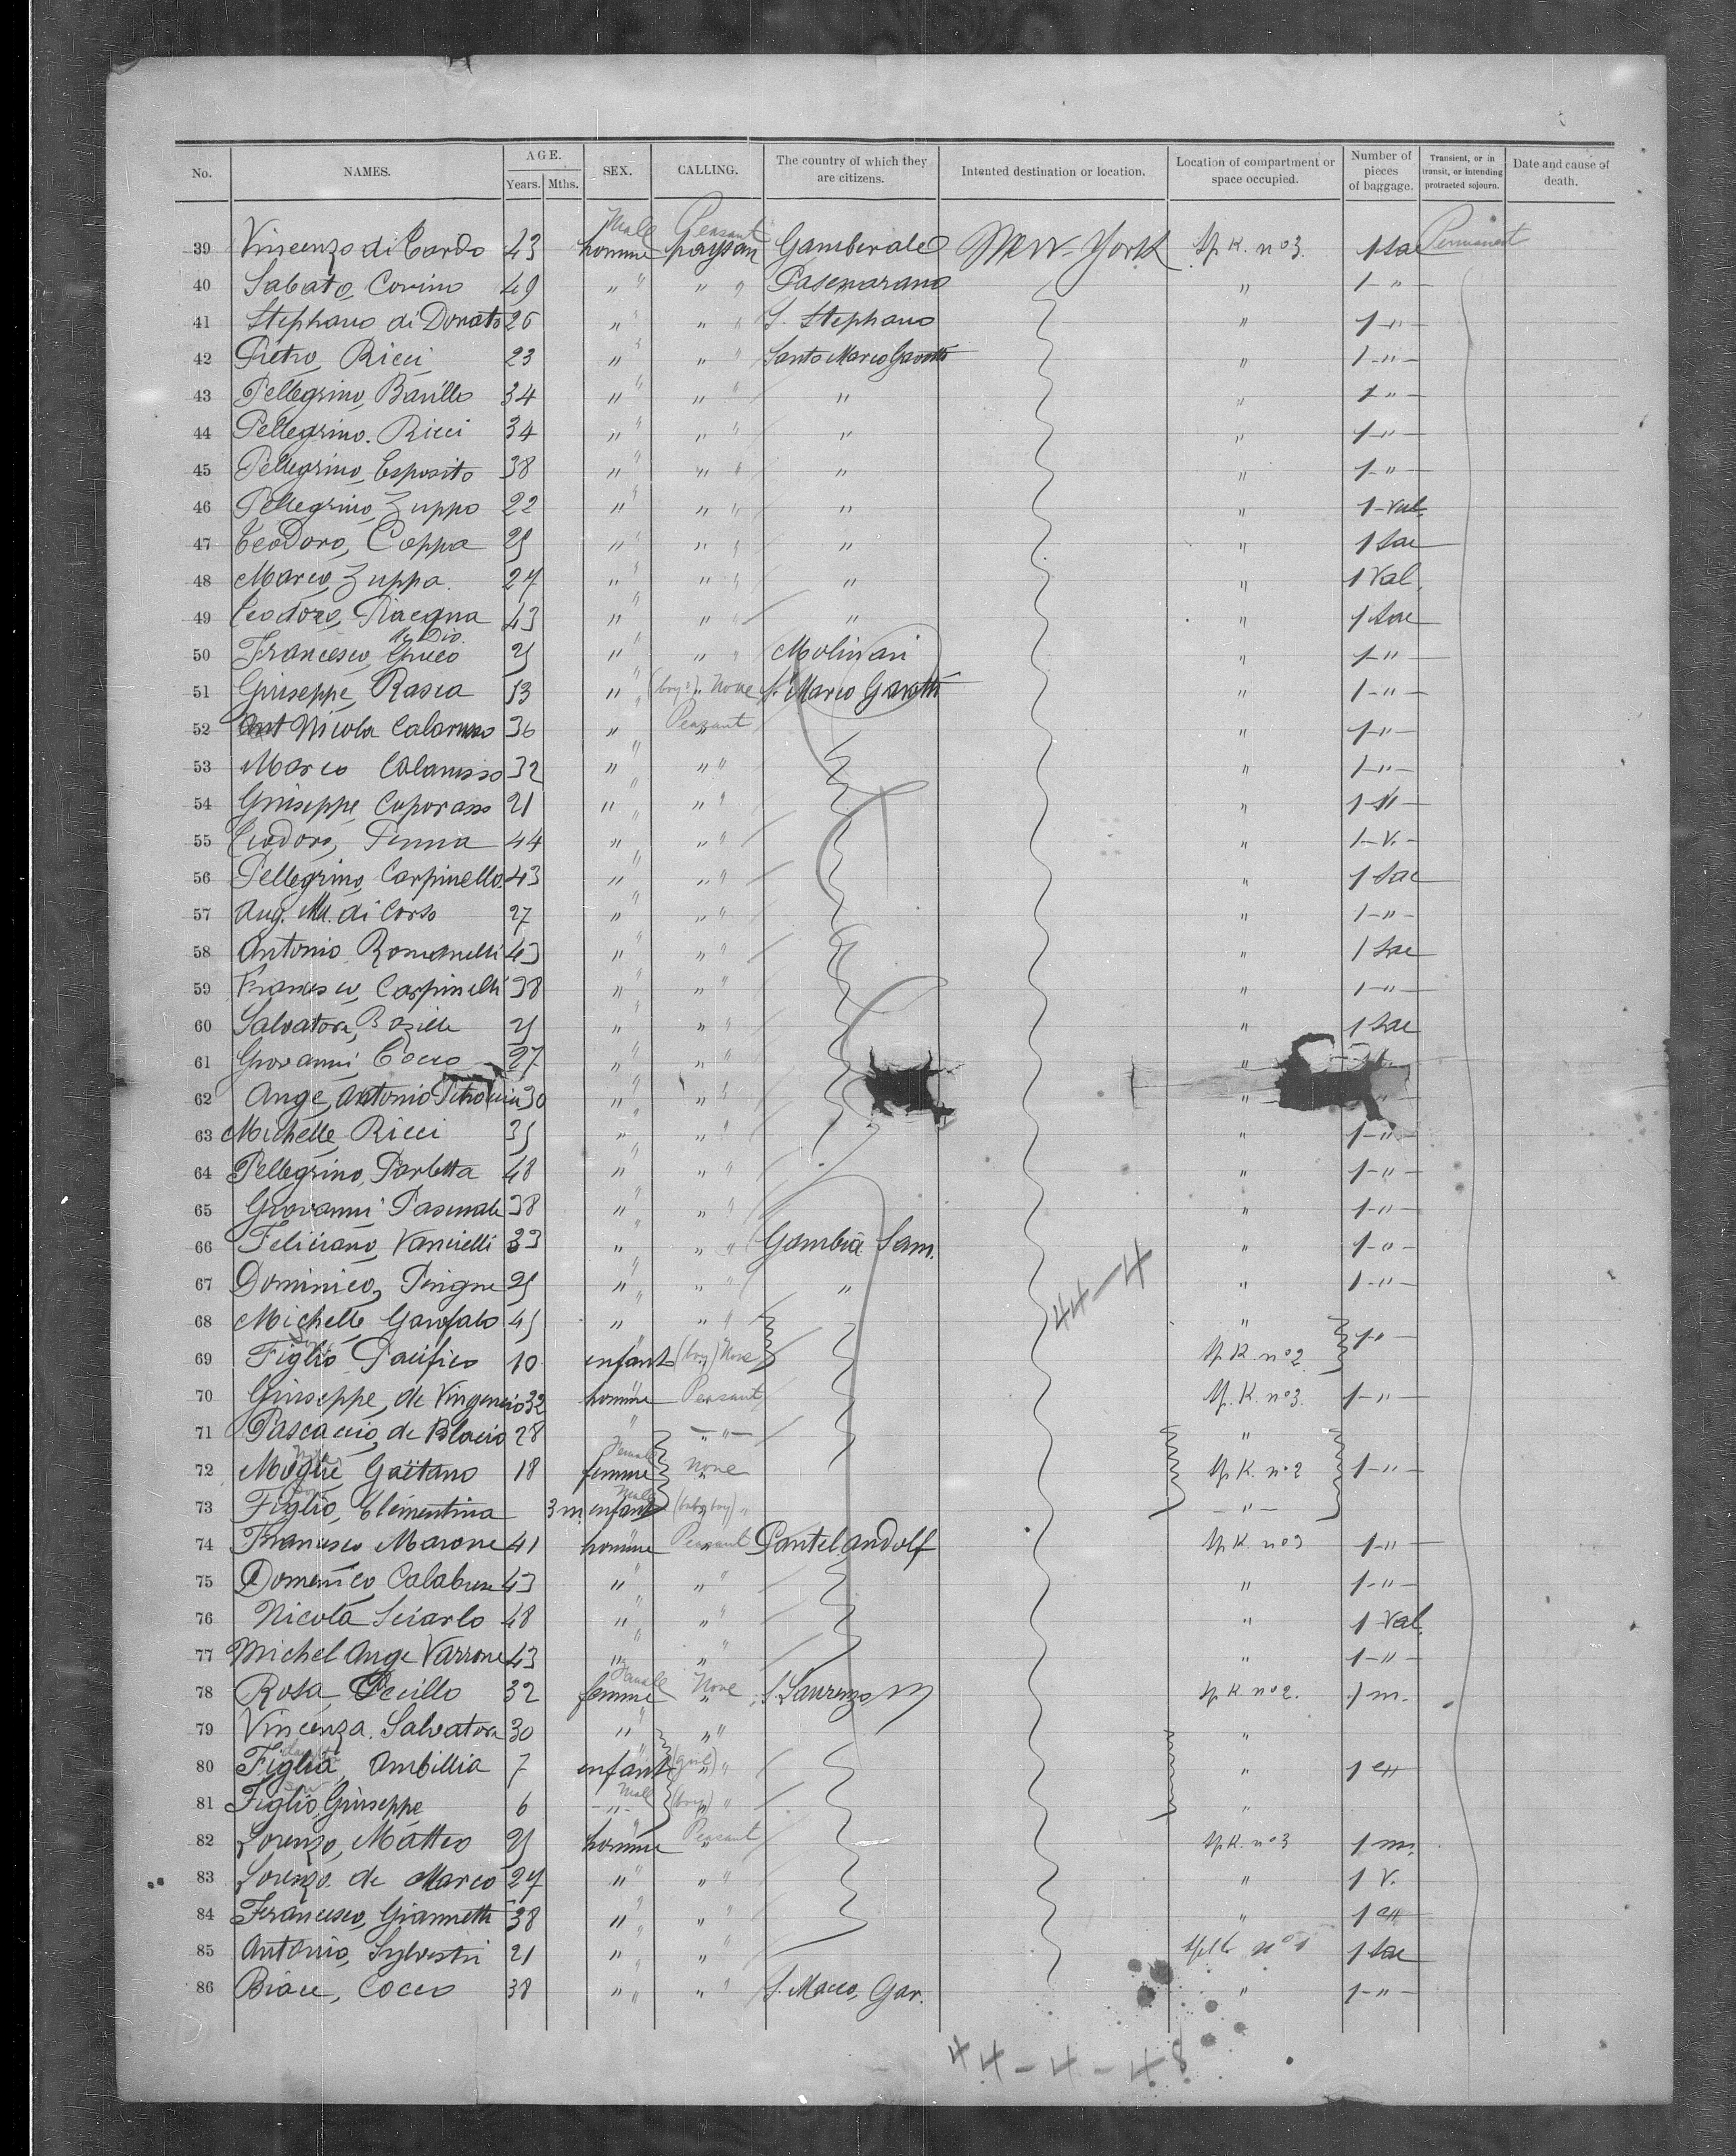 No. NAMES. AGE. Years. Mths. SEX. CALLING. The country of which they are citizens. Intented destination or location. Location of compartment or space occupied. Number of pieces of baggage. Transient, or in transit, or intending protracted sojourn. Date and cause of death.
Male Peasant
39 Vincenzo di Cardo 43 homme paysan Gamberale New-York Sp K. no 3. 1 Sac Permanent
40 Sabato, Corino 49 " " " " " 1 - " -
41 Stephano di Donato 26 " " " " S. Stephano " 1 - " -
42 Pietro, Ricci 23 " " " " Santo Marco Gavotti " 1 - " -
43 Pellegrino, Barillo 34 " " " " " " 1 " -
44 Pellegrino. Ricci 34 " " " " " " 1 - " -
45 Pellegrino, Esposito 38 " " " " " " 1 - " -
46 Pellegrino, Zuppo 22 " " " " " " 1 - Val.
47 Teodoro, Coppa 25 " " " " " " 1 Sac
48 Marco, Zuppa. 24 " " " " " " 1 Val.
49 Teodoro, 43 " " " " " " 1 Sac
50 Francesco, Greco 25 " " " " Molinari " 1 - " -
51 Giuseppe, Rasca 13 " " (boy) " None S. Marco Gavotti " 1 - " -
52 Ant Nicola Calarusso 36 " " Peasant " " 1 - " -
53 Marco Calarusso 32 " " " " " 1 - " -
54 Giuseppe, Caporasso 21 " " " " " 1 - " -
55 Teodoro, Penna 44 " " " " " 1 - V. -
56 Pellegrino, Carpinello. 43 " " " " " 1 Sac
57 Aug. Md. di Corso 27 " " " " " 1 - " -
58 Antonio Romanelli 43 " " " " " 1 Sac
59 Francesco, Carpinelli 38 " " " " " 1 - " -
60 Salvatore, Bazile 25 " " " " " 1 Sac
61 Giovanni, Cocco 27 " " " " "
62 Ange, Antonio 30 " " " " "
63 Michelle Ricci 35 " " " " " 1 - " -
64 Pellegrino, Parletta 48 " " " " " 1 - " -
65 Giovanni Pasquale 38 " " " " " 1 - " -
66 Feliciano, Vancielli 33 " " " " Gambia Sam. " 1 - " -
67 Dominico, Pingue 25 " " " " " " 1 - " -
44-4
68 Michelle Garofalo 45 " " " " "
69 Figlio Pacifico 10 enfant (boy) None Sp K. no 2 1 " -
70 Giuseppe, de Vingenzio 32 homme Peasant Sp. K. no 3. 1 - " -
71 Pascaccio, de Blasio 28 " - " - "
72 Moglie Gaëtano 18 Female femme None " Sp K. no 2 1 - " -
73 Figlio, Clementina 3 m. Male enfant (baby boy) " - " -
74 Francesco Marone 41 homme Peasant " Pantelandolf Sp K. no 3 1 - " -
75 Domenico, Calabrese 43 " " " " " 1 - " -
76 Nicola Sciarlo 48 " " " " " 1 Val.
77 Michel Ange Varrone 43 " " " " " 1 - " -
78 Rosa 32 Female femme None " S. Laurenzo M Sp K. no 2. 1 m.
79 Vincenza. Salvatora 30 " " " " "
80 Figlia, Ambillia 7 enfant (girl) " " " 1 c/t
81 Figlio, Giuseppe 6 Male - " - (boy) " " "
82 Lorenzo, Matteo 25 homme Peasant " Sp K. no 3 1 m.
83 Lorenzo. de Marco 24 " " " " " 1 V.
84 Francesco, Giannetti 38 " " " " " 1 c/t
85 Antonio, Sylvestri 21 " " " " no 1 1 Sac
86 Biace, Cocco 38 " " " " S. Marco, Gar. " 1 - " -
44-4-48